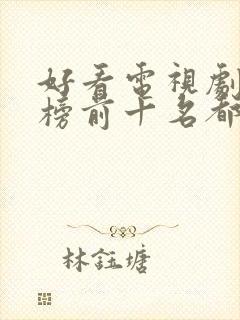 好看電視劇
榜前十名都
林鈺塘